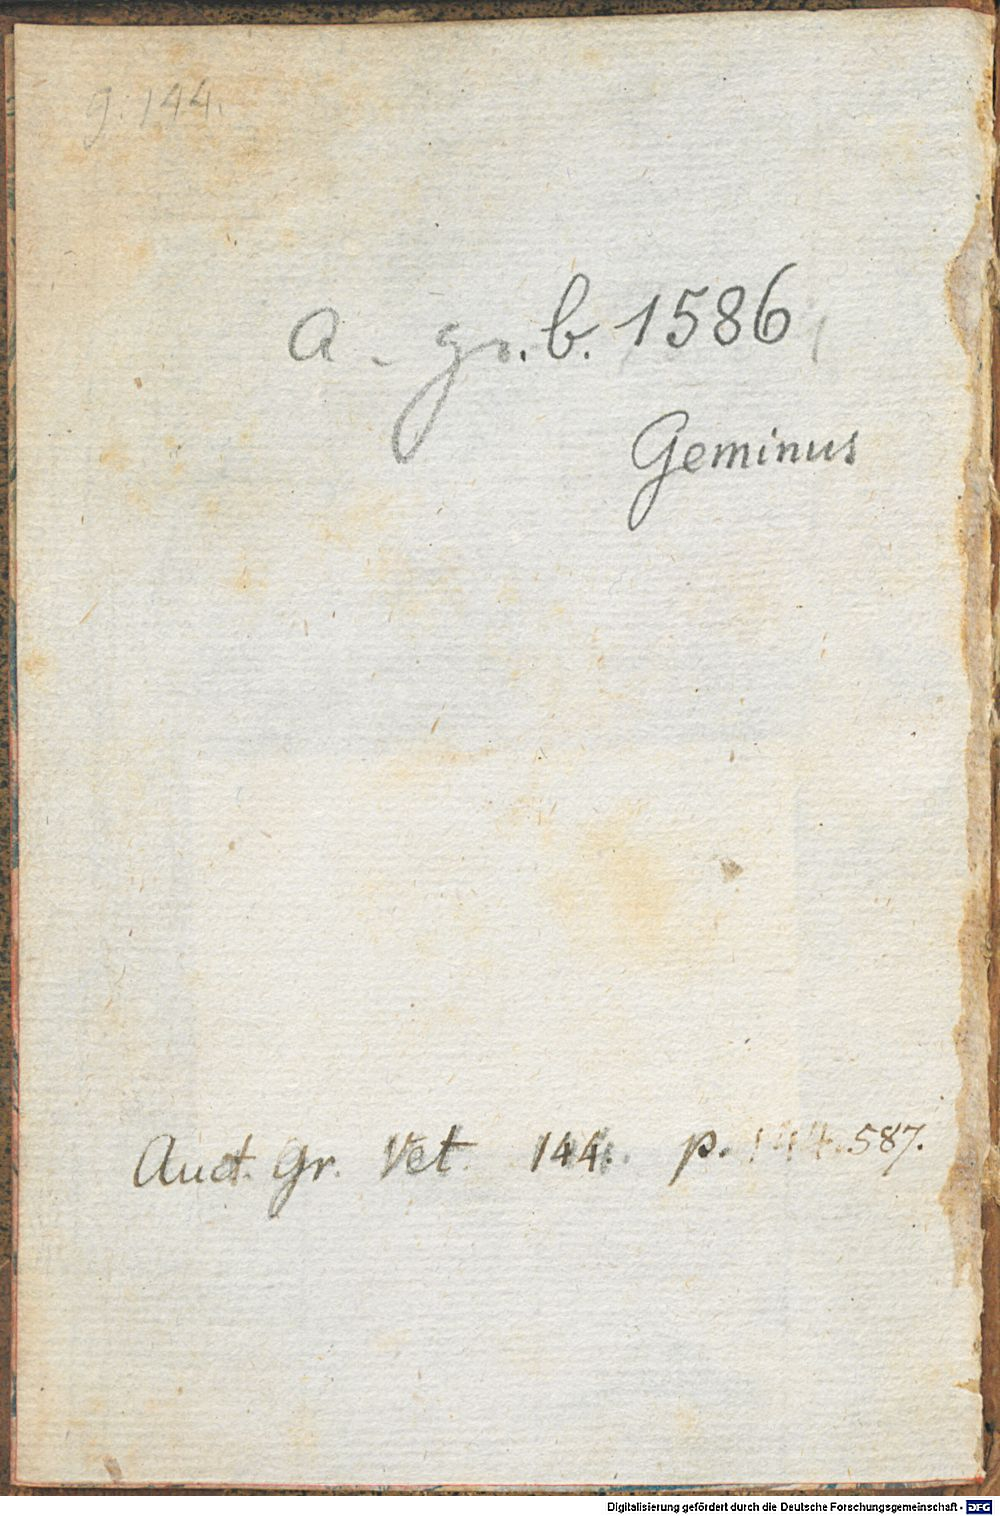 g. 144.
A. gr. b. 1586
Geminus
Auct. gr. Vet. 144. p. 144. 587.
Digitalisierung gefördert durch die Deutsche Forschungsgemeinschaft - DFG